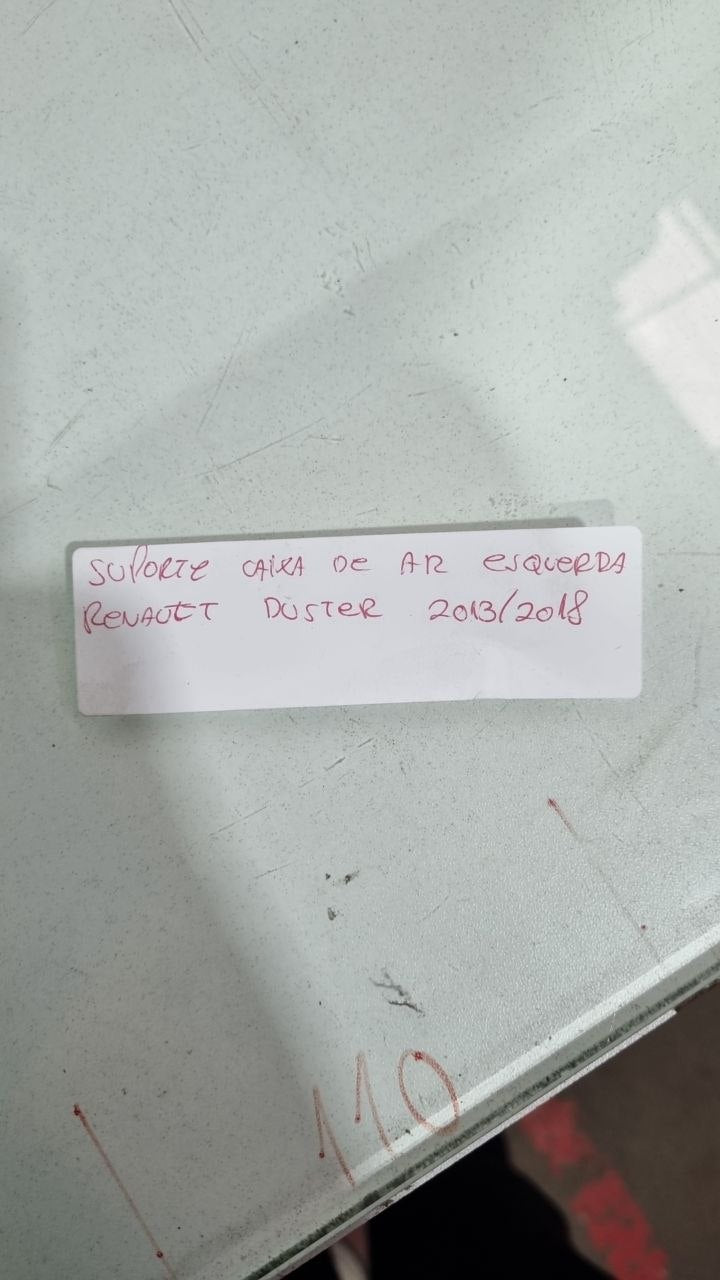 SUPORTE CAIXA DE AR ESQUERDA
RENAULT DUSTER 2013/2018
110